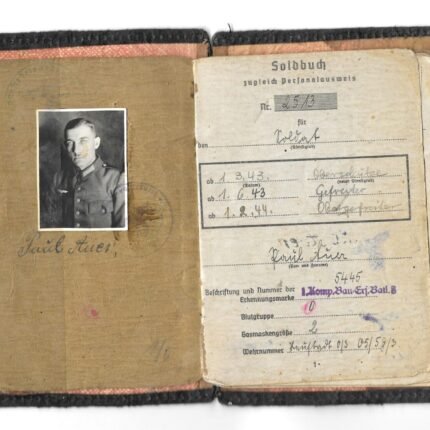 Paul Auer,
Soldbuch
zugleich Personalausweis
Nr. 2513
für
den Soldat
(Dienstgrad)
ab 1.3.43. Oberschütze
(Datum) (neuer Dienstgrad)
ab 1.6.43 Gefreiter
ab 1.2.44. Obergefreiter
Paul Auer
(Vor- und Zuname)
5445
Beschriftung und Nummer der 1.Komp.Bau-Ers.Batl.
Erkennungsmarke
Blutgruppe O
Gasmaskengröße 2
Wehrnummer